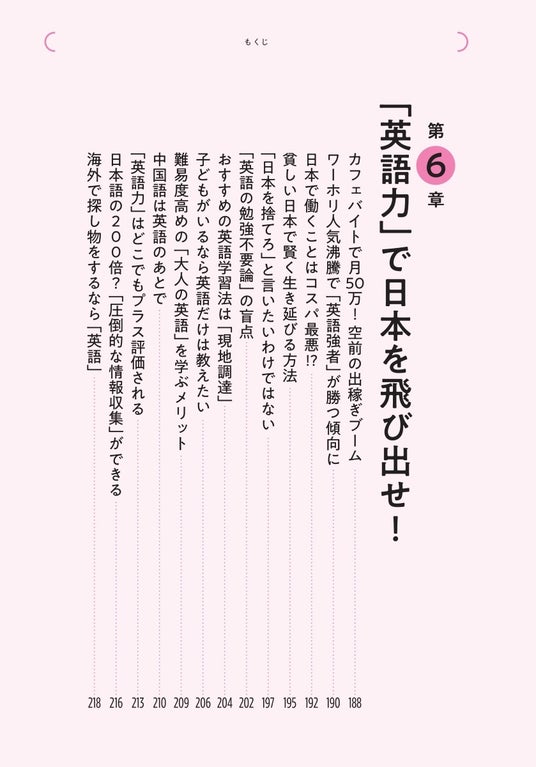 もくじ
第6章
「英語力」で日本を飛び出せ！
カフェバイトで月50万！空前の出稼ぎブーム 188
ワーホリ人気沸騰で「英語強者」が勝つ傾向に 190
日本で働くことはコスパ最悪!? 192
貧しい日本で賢く生き延びる方法 195
「日本を捨てろ」と言いたいわけではない 197
「英語の勉強不要論」の盲点 202
おすすめの英語学習法は「現地調達」 204
子どもがいるなら英語だけは教えたい 206
難易度高めの「大人の英語」を学ぶメリット 209
中国語は英語のあとで 210
「英語力」はどこでもプラス評価される 213
日本語の200倍？「圧倒的な情報収集」ができる 216
海外で探し物をするなら「英語」 218